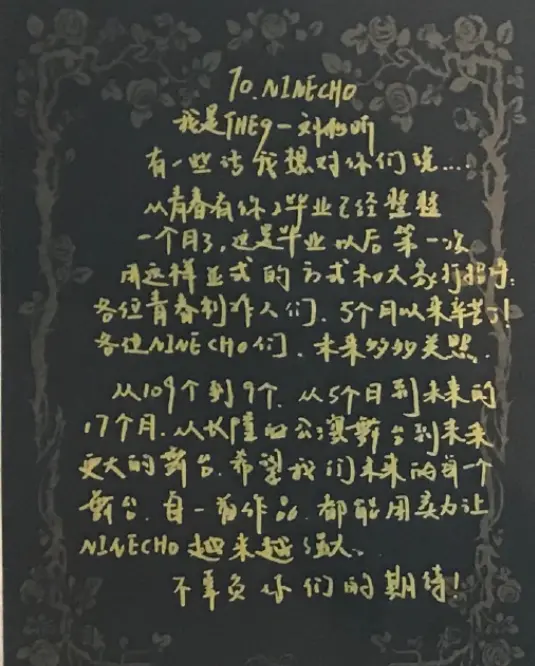 To. NINECHO
我是THE9-刘雨昕
有一些话我想对你们说....
从青春有你2毕业已经整整
一个月了,这是毕业以后第一次
用这样正式的方式和大家打招呼:
各位青春制作人们、5个月以来辛苦了!
各位NINECHO们、未来多多关照.
从109个到9个.从5个月到未来的
17个月.从长隆的公演舞台到未来
更大的舞台.希望我们未来的每一个
舞台.每一份作品.都能用实力让
NINECHO越来越强大.
不辜负你们的期待!